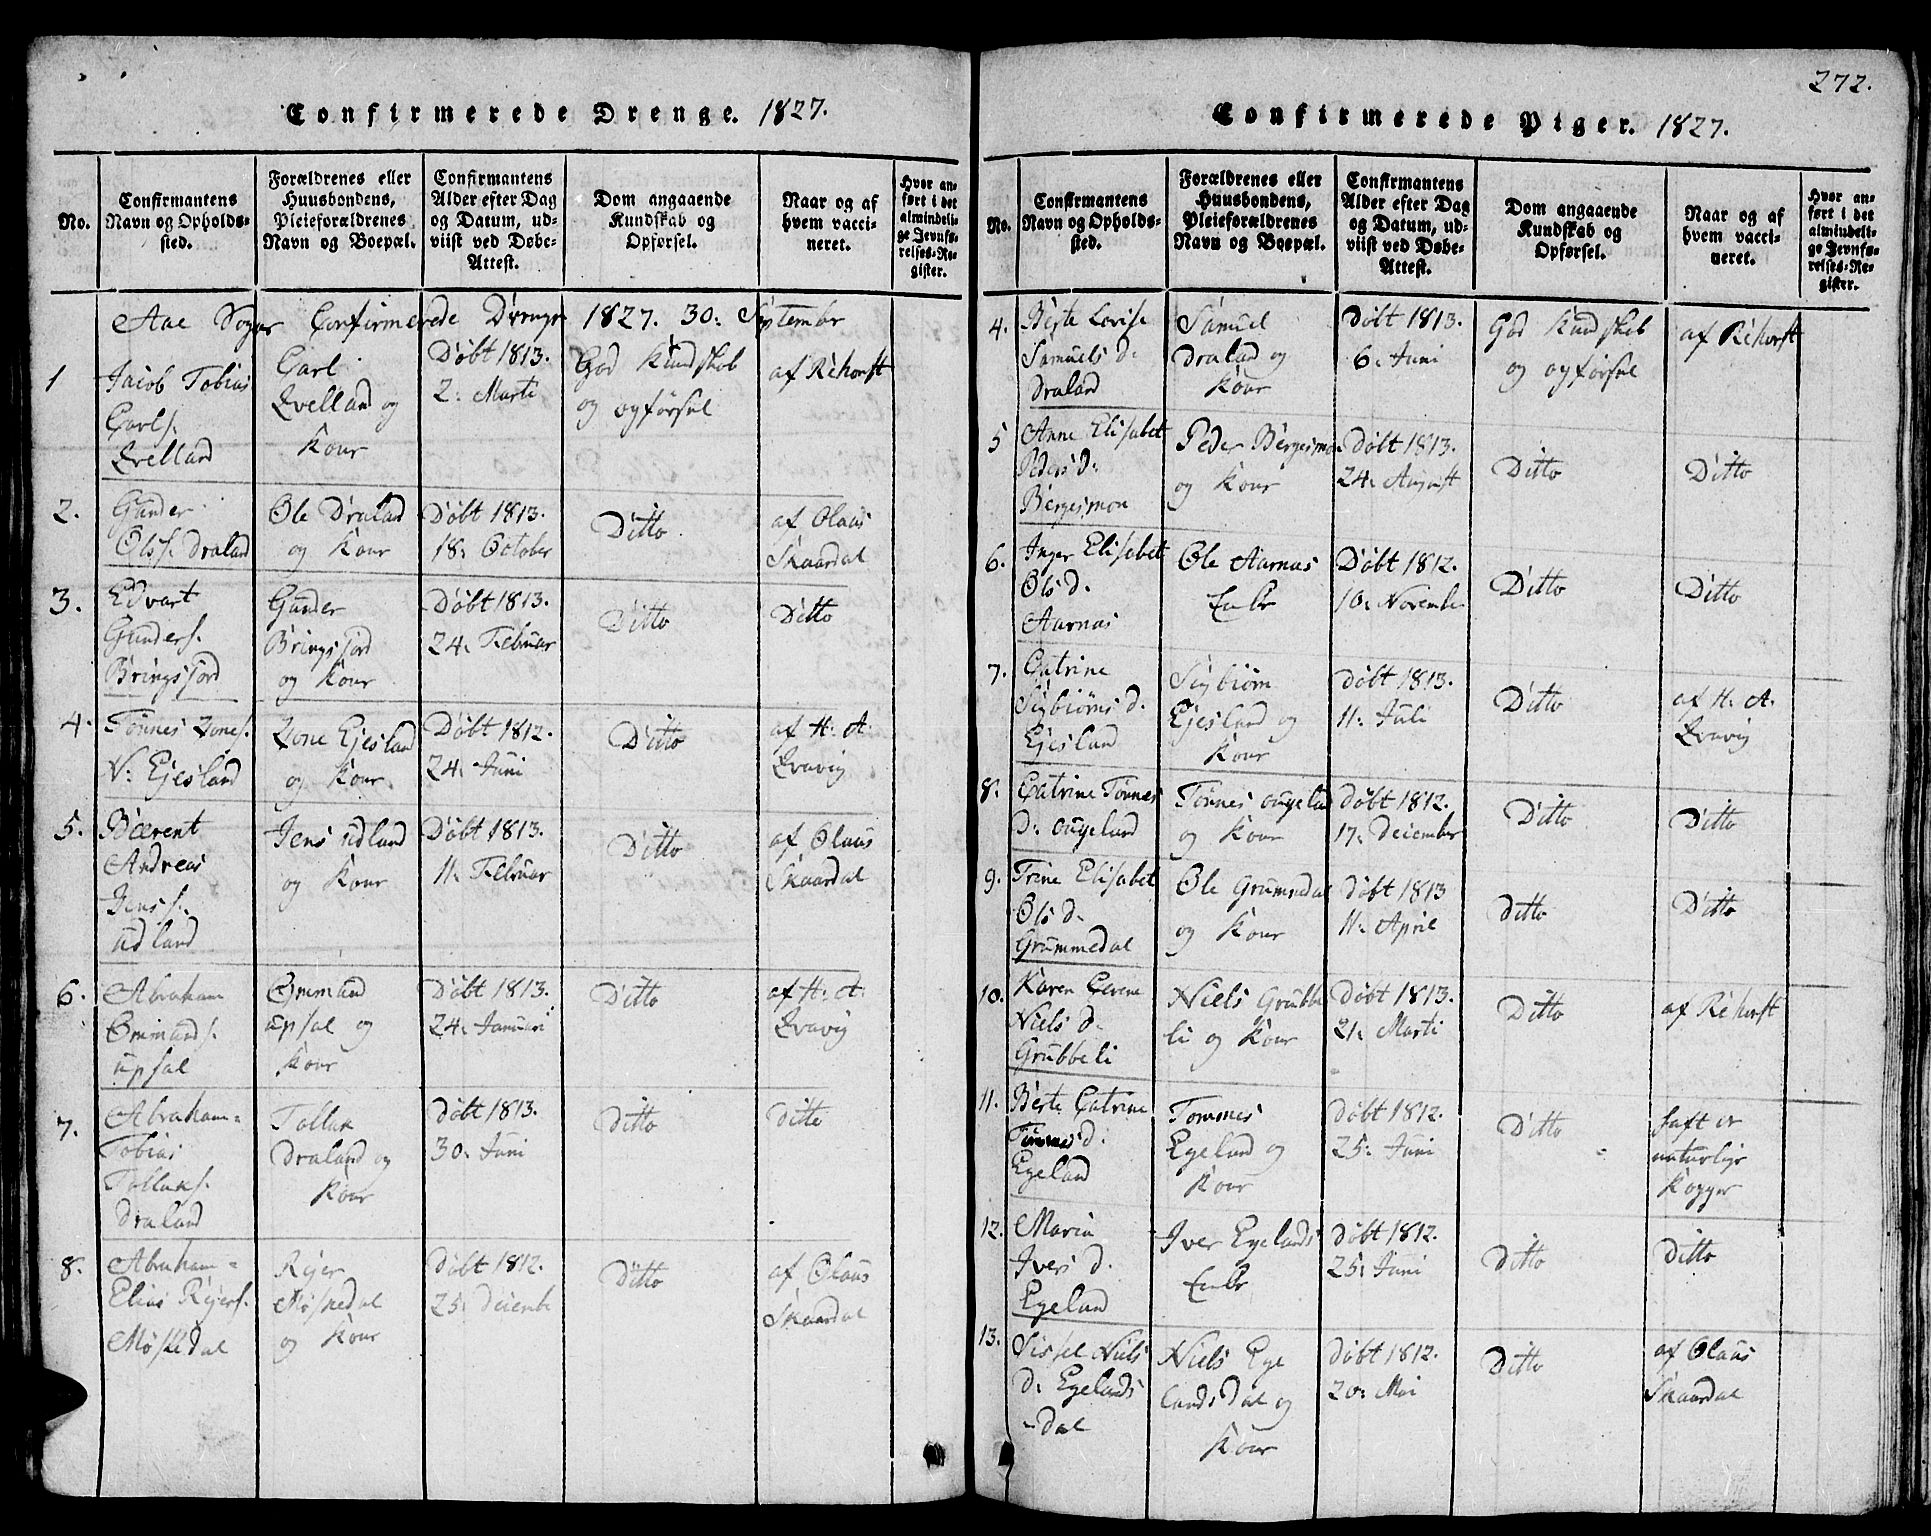 Confirmerede Drenge. 1827.
No.
Confirmantens Navn og Opholds-sted.
Forældrenes eller Huusbondens, Pleieforældrenes Navn og Boepæl.
Confirmantens Alder efter Dag og Datum, ud-viist ved Døbe-Attest.
Dom angaaende Kundskab og Opførsel.
Naar og af hvem vacci-neret.
Hvor an-ført i det almindeli-ge Jevnfø-relses-Re-gister.
Aae Sogns Confirmerede Drenge 1827. 30: September
1 Jacob Tobias Carls. Qvelland
Carl Qvelland og Kone
Døbt 1813. 2: Marti
God Kundskab og opførsel
af Rehorst
2. Gunder Ols. Draland
Ole Draland og Kone
Døbt 1813. 18: October
Ditto
af Olaus Skaardal
3. Edvart Gunders. Bringsjord
Gunder Bringsjord og Kone
Døbt 1813. 24: Februar
Ditto
Ditto
4. Tønnes Zones. V: Ejesland
Zone Ejesland og Kone
Døbt 1812. 24: Juni
Ditto
af H: A: Qvavig
5. Bærent Andreas Jens s. Udland
Jens Udland og Kone
Døbt 1813. 11: Februar
Ditto
af Olaus Skaardal
6. Abraham Ommunds. Upsal
Ommund Upsal og Kone
Døbt 1813. 24: Januari
Ditto
af H: A: Qvavig
7. Abraham= Tobias Tollaks. Draland
Tollak Draland og Kone
Døbt 1813. 30: Juni
Ditto
Ditto
8. Abraham= Elias Rejers. Møskedal
Rejer Møskedal og Kone
Døbt 1812. 25: Decembr
Ditto
af Olaus Skaardal
272.
Confirmerede Piger. 1827.
No.
Confirmantens Navn og Opholds-sted.
Forældrenes eller Huusbondens, Pleieforældrenes Navn og Boepæl.
Confirmantens Alder efter Dag og Datum, ud-viist ved Døbe-Attest.
Dom angaaende Kundskab og Opførsel.
Naar og af hvem vacci-neret.
Hvor an-ført i det almindeli-ge Jevnfø-relses-Re-gister.
4. Berte Lovise Samuels d: Draland
Samuel Draland og Kone
Døbt 1813. 6: Juni
God Kundskab og opførsel
af Rehorst
5 Anne Elisabet Peders d: Bergesmon
Peder Bergesmon og Kone
Døbt 1813. 24: August
Ditto
Ditto
6. Inger Elisabet Ols d. Aarnas
Ole Aarnas Enke
Døbt 1812. 10: November
Ditto
Ditto
7. Catrine Sigbiørns d. Ejesland
Sigbiørn Ejesland og Kone
Døbt 1813. 11: Juli
Ditto
af H: A. Qvavig
8. Catrine Tønnes d: Ougeland
Tønnes Ougeland og Kone
Døbt 1812. 17: December
Ditto
Ditto
9. Trine Elisabet Ols d. Grummedal
Ole Grummedal og Kone
Døbt 1813 11: April
Ditto
Ditto
10. Karen Niels d. Grubbeli
Niels Grubbeli og Kone
Døbt 1813. 21: Marti
Ditto
af Rehorst
11. Berte Catrine Tommes d: Egeland
Tommes Egeland og Kone
Døbt 1812. 25: Juni
Ditto
haft er naturlige Kopper
12. Maria Ivers d. Egeland
Iver Egelands Enke
Døbt 1812. 25: Juni
Ditto
Ditto
13. Sissel Niels d: Egelands-dal
Niels Egelandsdal og Kone
Døbt 1812. 20: Mai
Ditto
af Olaus Skaardal